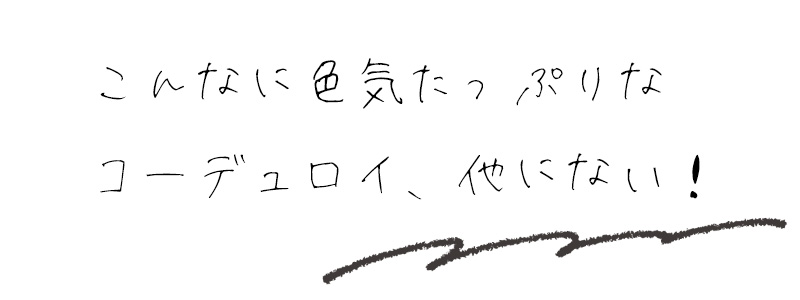 こんなに色気たっぷりな
コーデュロイ、他にない!